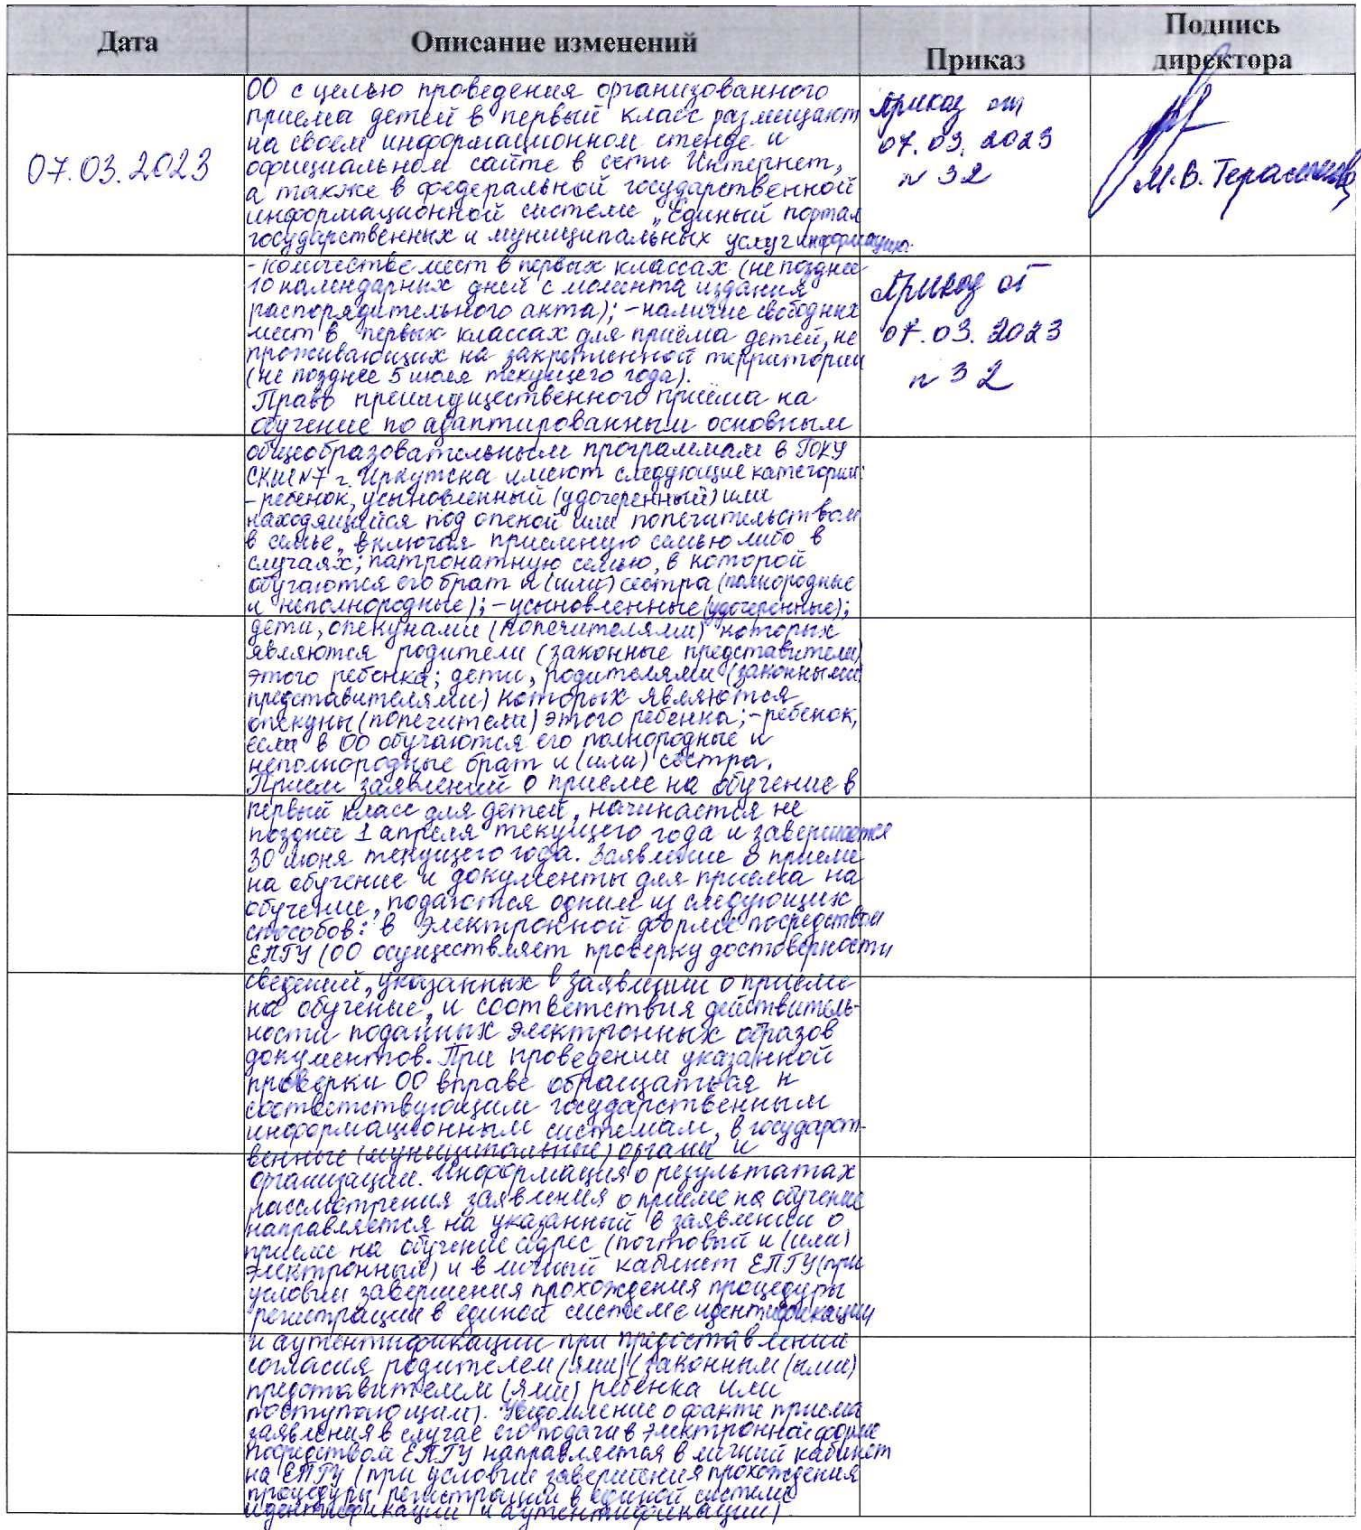 Дата
Описание изменений
Приказ
Подпись
директора
07.03.2023
ОО с целью проведения организованного
приема детей в первый класс размещают
на своем информационном стенде и
официальном сайте в сети Интернет,
а также в федеральной государственной
информационной системе „Единый портал
государственных и муниципальных услуг информацию:
Приказ от
07.03.2023
n 32
М.В. Герасимова
- количестве мест в первых классах (не позднее
10 календарных дней с момента издания
распорядительного акта); - наличие свободных
мест в первых классах для приёма детей, не
проживающих на закрепленной территории
(не позднее 5 июля текущего года).
Право преимущественного приёма на
обучение по адаптированным основным
Приказ от
07.03.2023
n 32
общеобразовательным программам в ГОКУ
СКШ N7 г. Иркутска имеют следующие категории:
- ребенок, усыновленный (удочеренный) или
находящийся под опекой или попечительством
в семье, включая приемную семью либо в
случаях; патронатную семью, в которой
обучаются его брат и (или) сестра (полнородные
и неполнородные); - усыновленные (удочеренные);
дети, опекунами (попечителями) которых
являются родители (законные представители)
этого ребенка; дети, родителями (законными
представителями) которых являются
опекуны (попечители) этого ребенка; - ребенок,
если в ОО обучаются его полнородные и
неполнородные брат и (или) сестра.
Прием заявлений о приеме на обучение в
первый класс для детей, начинается не
позднее 1 апреля текущего года и завершается
30 июня текущего года. Заявление о приеме
на обучение и документы для приема на
обучение, подаются одним из следующих
способов: в электронной форме посредством
ЕПГУ (ОО осуществляет проверку достоверности
сведений, указанных в заявлении о приеме
на обучение, и соответствия действитель-
ности поданных электронных образов
документов. При проведении указанной
проверки ОО вправе обращаться к
соответствующим государственным
информационным системам, в государст-
венные (муниципальные) органы и
организации. Информация о результатах
рассмотрения заявления о приеме на обучение
направляется на указанный в заявлении о
приеме на обучение адрес (почтовый и (или)
электронный) и в личный кабинет ЕПГУ (при
условии завершения прохождения процедуры
регистрации в единой системе идентификации
и аутентификации при предоставлении
согласия родителем (ями) (законным (ыми)
представителем (ями) ребенка или
поступающим). Уведомление о факте приема
заявления в случае его подачи в электронной форме
посредством ЕПГУ направляется в личный кабинет
на ЕПГУ (при условии завершения прохождения
процедуры регистрации в единой системе
идентификации и аутентификации)